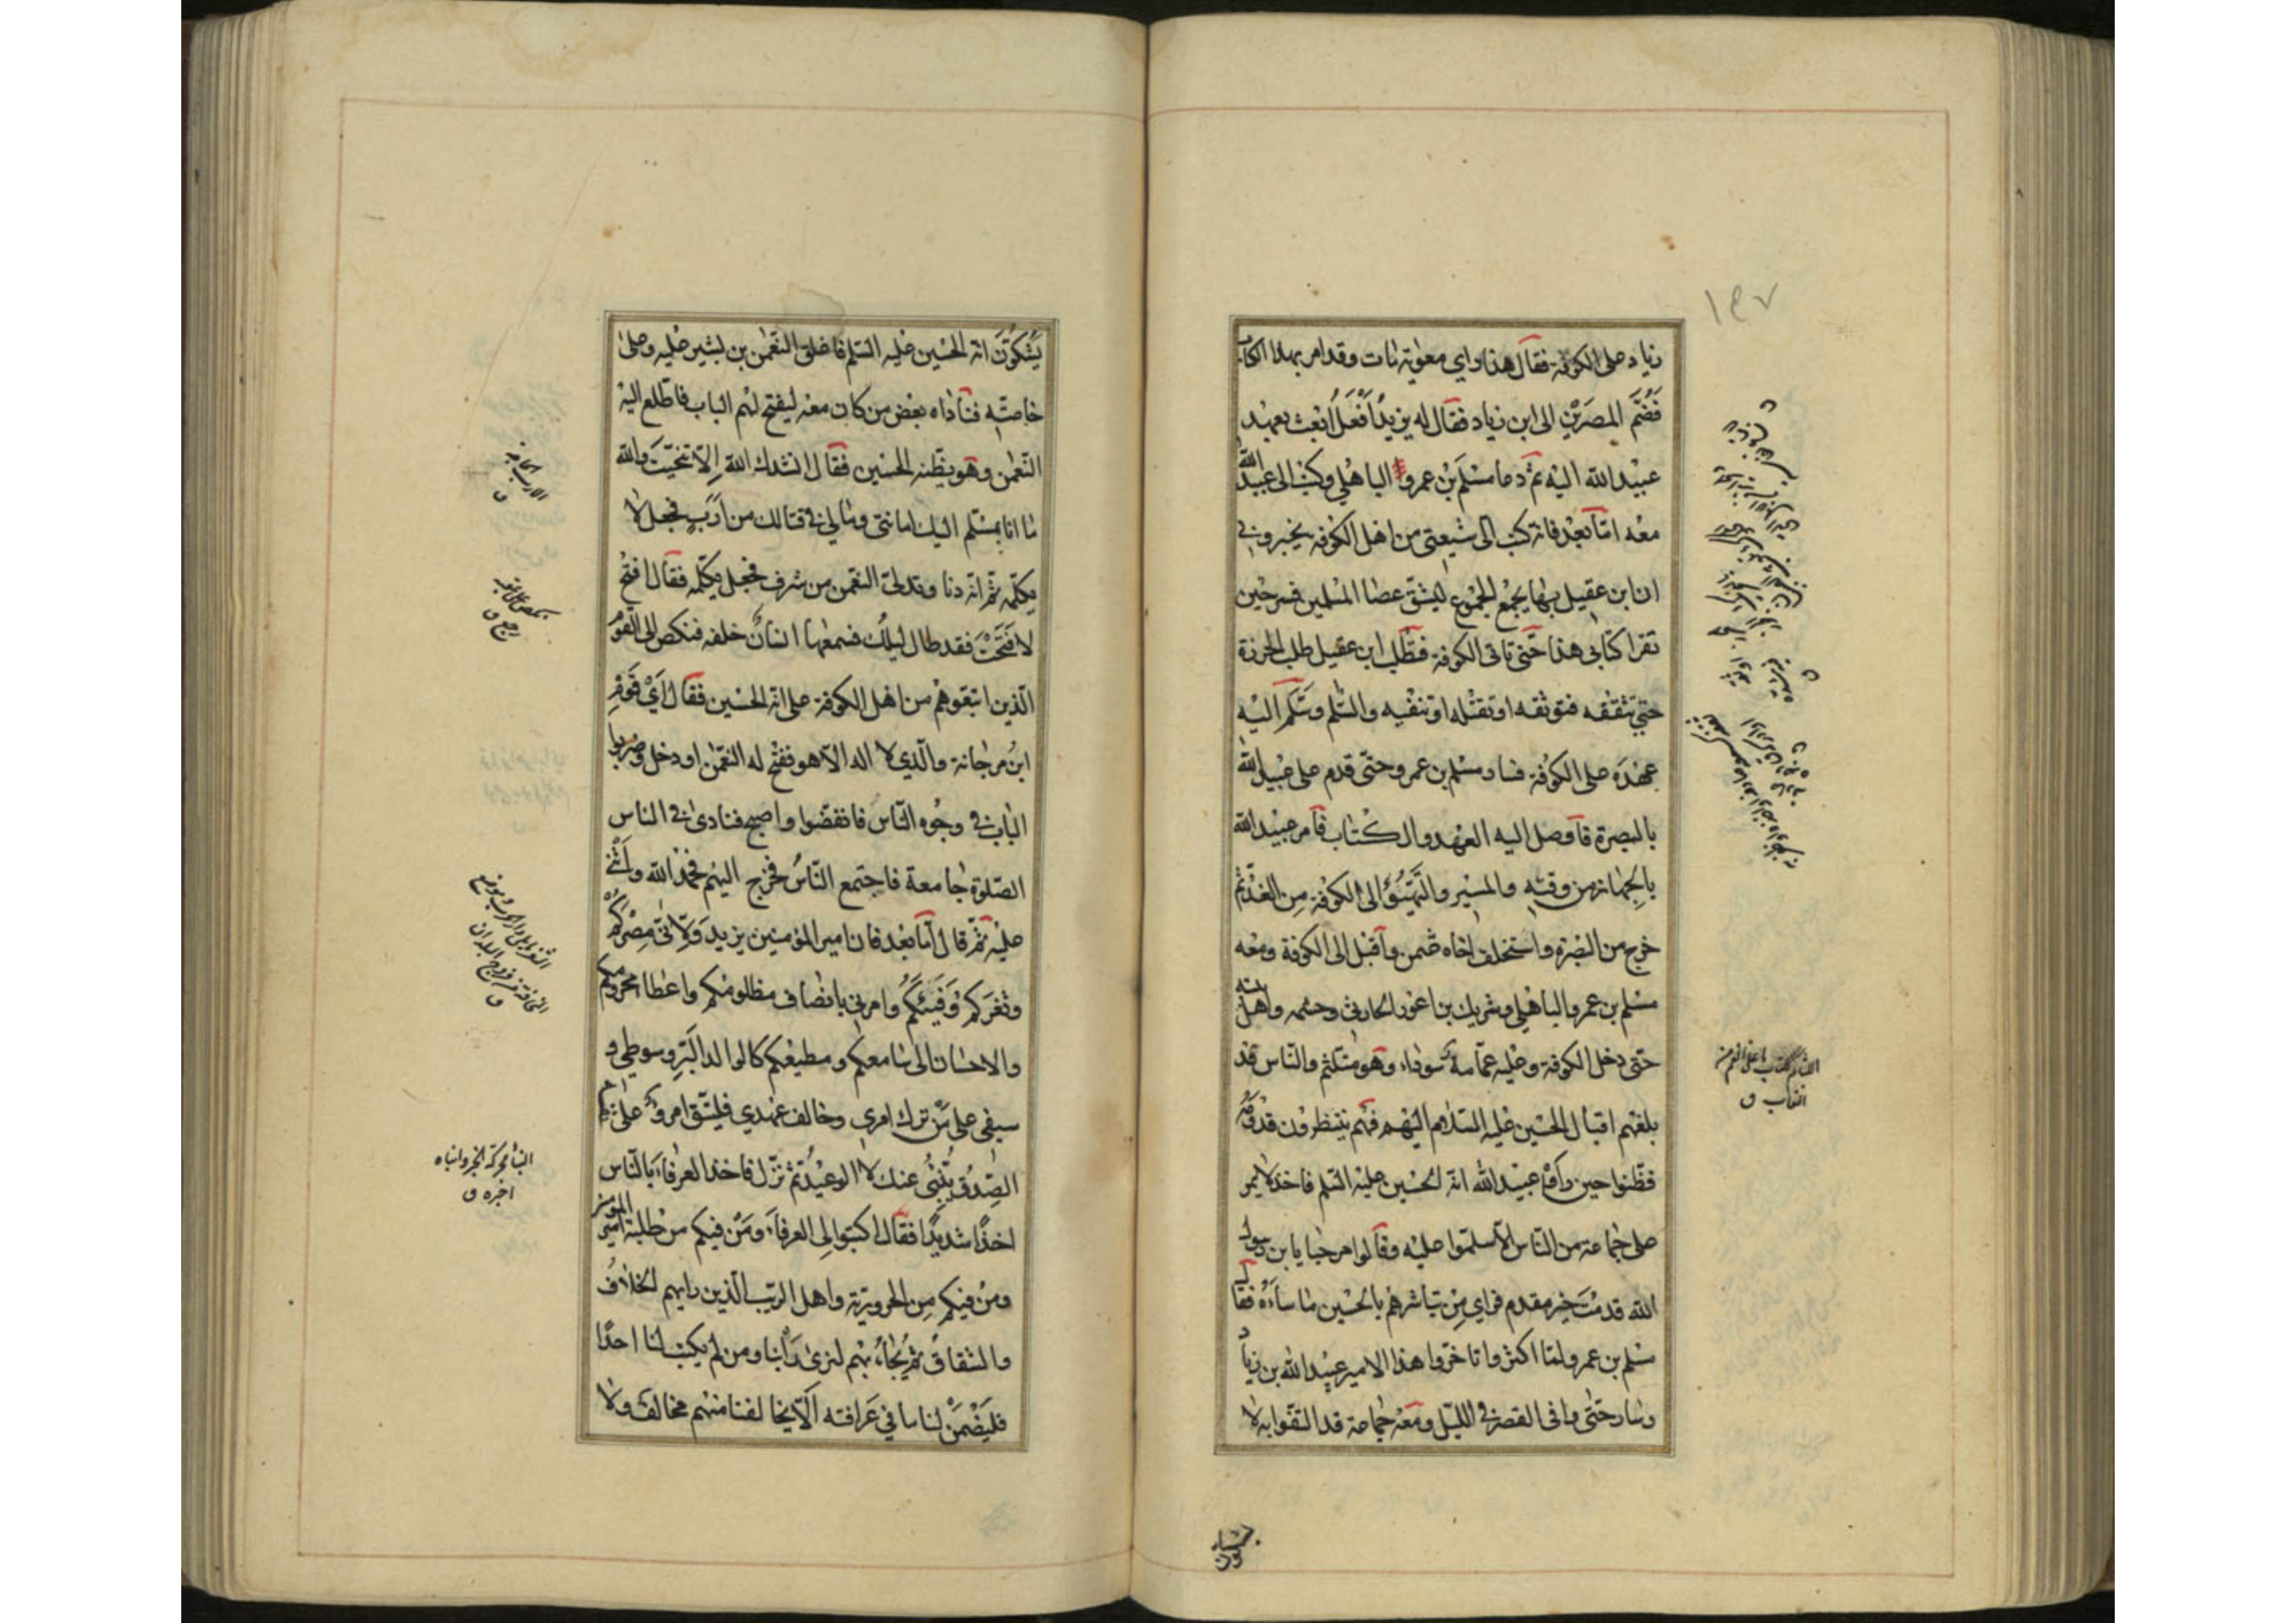 ١٩٧
زياد على الكوفة فقال هذا راي معوية مات وقد امر بهذا الكتاب
فَضُمَّ المصرَين الى ابن زياد فقال له يزيد اَفْعَلُ ابعث بعهد
عبيد الله اليه ثم دعا مسلم بن عمرو الباهلي وكتب الى عبيد الله
معه امّا بعد فانه كتب الى شيعتي من اهل الكوفة يخبروني
ان ابن عقيل بها يجمع الجموع ليشق عصا المسلمين فسر حين
تقرا كتابى هذا حتى تاتى الكوفة فتطلب ابن عقيل طلب الخرزة
حتى تثقفه فتوثقه او تقتله او تنفيه والسّلم وسَلَّم اليه
عهدَه على الكوفة فسار مسلم بن عمرو حتى قدم على عبيد الله
بالبصرة فاوصل اليه العهد والكتاب فامر عبيد الله
بالجهاز من وقته والمسير والتَّهَيُّؤ الى الكوفة مِن الغد ثم
خرج من البصرة واستخلف اخاه عثمن واقبل الى الكوفة ومعه
مسلم بن عمرو الباهلي وشريك بن اعور الحارثي وحشمه واهل بيته
حتى دخل الكوفة وعليه عمّامة سوداء وهو متلثم والناس قد
بلغهم اقبال الحسين عليه السلام اليهم فهم ينتظرون قدومَه
فظنوا حين راَوْا عبيد الله انه الحسين عليه السّلم فاخذ لا يمر
على جماعة من الناس الّا سلّموا عليه وقالوا مرحبا يا بن رسول
الله قدمْتَ خير مقدم فراى مِن تباشرهم بالحسين ما ساءَهُ فقال
مسلم بن عمرو لمّا اكثروا تاخّروا هذا الامير عبيد الله بن زياد
وسار حتى وافى القصر في الليل ومعه جماعة قد التفّوا به لا
يَشُكّونَ انه الحسين عليه السّلم فاغلق النعمن بن بشير عليه وعلى
خاصّته فناداه بعض من كان معه ليفتح لهم الباب فاطّلع اليه
النّعمن وهو يظنه الحسين فقال انشدك الله اِلّا تنحّيتَ والله
ما انا بمسّلم اليك امانتي ومالي في قتالك من اَرَبٍ فجعل لا
يكلّمه ثمّ انّه دنا وتدلىّ النعمن من شرف فجعل يكلّمه فقال افتحْ
لا فَتَحْتَ فقد طال ليلُك فسمعها انسانٌ خلفه فنكص الى القوم
الّذين اتبعوهم من اهل الكوفة على انه الحسين فقال اَيْ قَومِ
ابنُ مرجانة والّذي لا اله الّا هو ففتح له النعمن ودخل وضربوا
الباب في وجوه النّاس فانفضّوا واصبح فنادى في الناس
الصّلوة جامعة فاجتمع النّاسُ فخرج اليهم فحمد الله واَثْنى
عليه ثم قال امّا بعد فان امير المؤمنين يزيد وَلّاني مِصْرَكُم
وثَغرَكم وَفَيْئَكُم وامرني بانصاف مظلومكم واعطا محرومكم
والاحسان الى سامعكم ومطيعكم كالوالد البَرِّ وسوطي و
سيفى على مَن ترك امري وخالف عهدي فليتّق امرؤٌ على نفسه
الصّدقُ يُنْبِئُ عنك لا الوعيدُ ثم نزل فاخذ العرفاءَ بالنّاس
اخذًا شديدًا فقال اكتبوا الى العرفاءَ ومَن فيكم من طلبة امير المؤمنين
ومن فيكم مِن الحرورية واهل الريَب الّذين رايهم الخلاف
والشقاق ثم يُجاءُ بهم لنرى رَاْيَنا ومن لم يكتب لنا احدًا
فليَضْمَنْ لنا ما في عَرافته اَلّا يخالفنا منهم مخالف ولا
الارب الحاجة
ق
نكص على عقبيه
رجع ق
النبأ محركة الخبر وانباه
اخبره ق
اللثام ككتاب ما على الفم من
النقاب ق